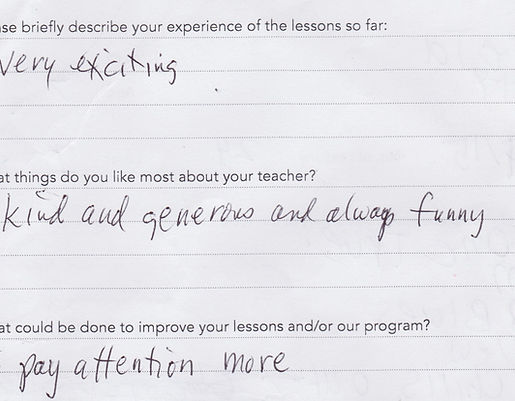 se briefly describe your experience of the lessons so far:
very exciting
at things do you like most about your teacher?
kind and generous and always funny
at could be done to improve your lessons and/or our program?
pay attention more